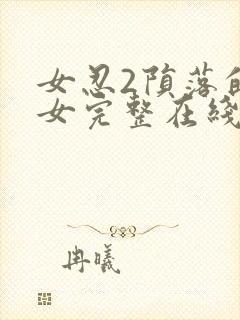 女忍2陨落的
女完整在线
冉曦